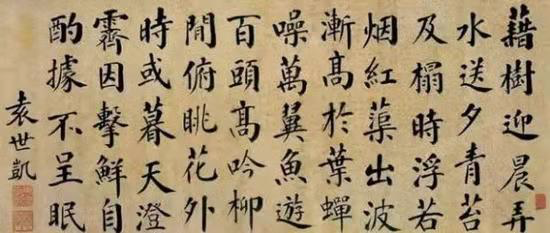 藉樹迎晨弄
水送夕青苔
及榻時浮若
烟紅蕖出波
漸髙於葉蟬
噪萬翼魚遊
百頭髙吟柳
間俯眺花外
時或暮天澄
霽因擊鮮自
酌據不呈眠
袁世凱